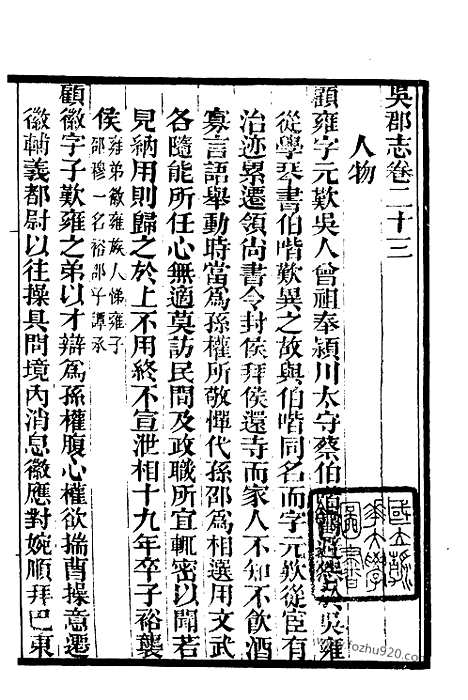 吳郡志卷二十三
人物
顧雍字元歎吳人曾祖奉潁川太守蔡伯喈避怨於吳雍
從學琴書伯喈歎異之故與伯喈同名而字元歎從臣有
治迹累遷領尚書令封侯拜侯還寺而家人不知不飲酒
寡言語舉動時當為孫權所敬憚代孫邵為相選用文武
各隨能所任心無適莫訪民間及政職所宜輒密以聞若
見納用則歸之於上不用終不宣泄相十九年卒子裕襲
侯雍弟徽雍族人悌雍子
邵穆一名裕邵子譚承
顧徽字子歎雍之弟以才辯為孫權腹心權欲揣曹操意遷
徽輔義都尉以往操具問境內消息徽應對婉順拜巴東
www.fozhu920.com